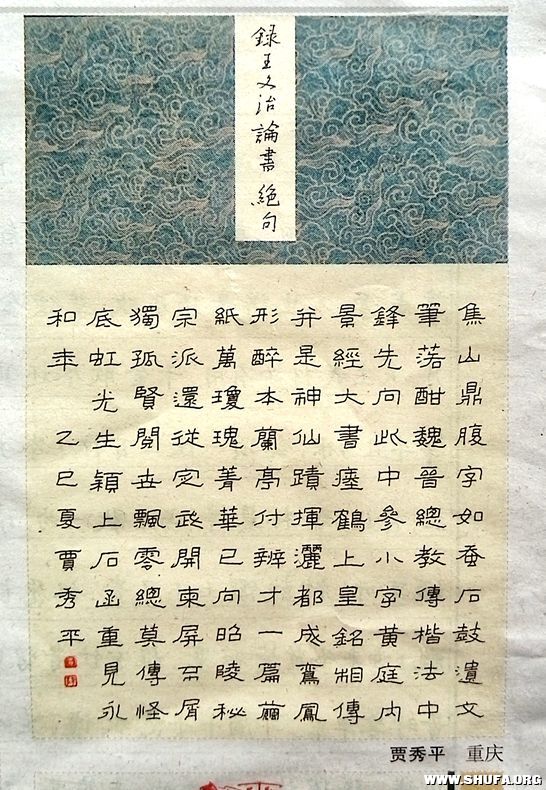 録王文治論書絕句
焦山鼎腹字如蚕石鼓遺文
筆落酣魏晉總教傳楷法中
鋒先向此中參小字黄庭内
景經大書瘞鶴上皇銘相傳
并是神仙蹟揮灑都成鸞鳳
形醉本蘭亭付辨才一篇繭
紙萬瓊瑰菁華已向昭陵秘
宗派還從定武開東屏不屑
獨孤賢閱世飄零總莫傳怪
底虹光生穎上石函重見永
和年 乙巳夏賈秀平
贾秀平 重庆
WWW.SHUFA.ORG